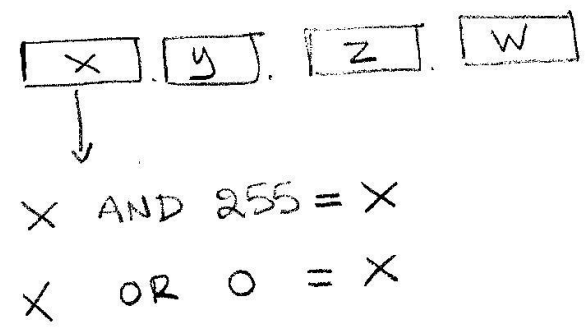 X . y . Z . W
X AND 255 = X
X OR 0 = X